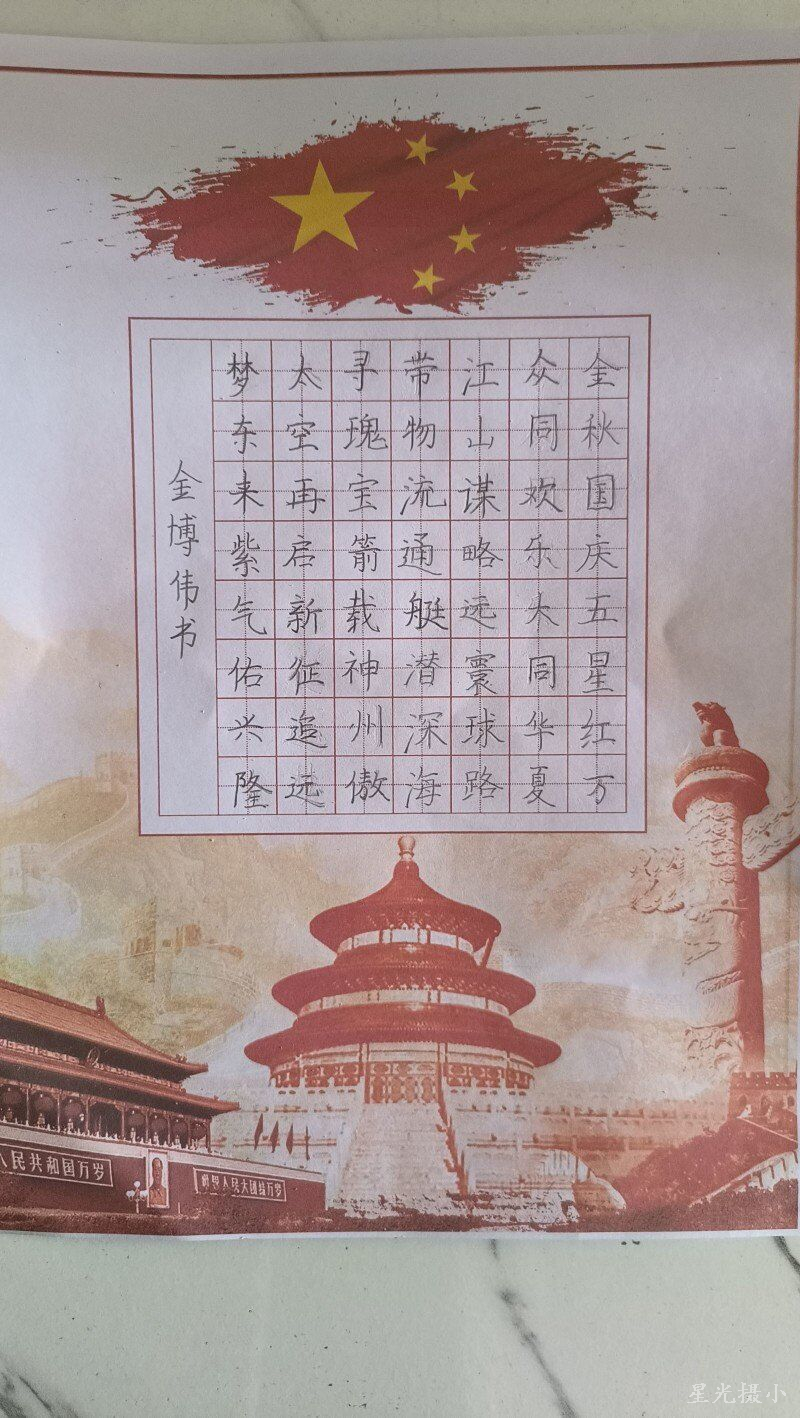 金秋国庆五星红万
众同欢乐大同华夏
江山谋略远寰球路
带物流通艇潜深海
寻瑰宝箭载神州傲
太空再启新征追远
梦东来紫气佑兴隆
金博伟书
人民共和国万岁
世界人民大团结万岁
星光摄小